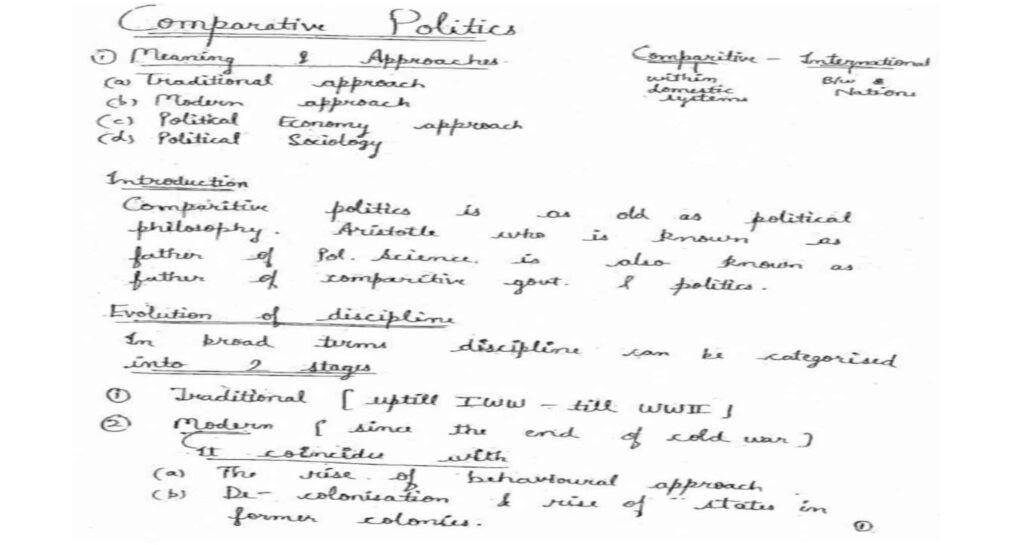 Comparative Politics
① Meaning & Approaches.
(a) Traditional approach
(b) Modern approach
(c) Political Economy approach
(d) Political Sociology
Comparitive – International
within B/w &
domestic Nations
systems
Introduction
Comparitive politics is as old as political
philosophy. Aristotle who is known as
father of Pol. Science. is also known as
father of comparitive govt. & politics.
Evolution of discipline
In broad terms discipline can be categorised
into 2 stages
① Traditional [ uptill I WW – till WW II ]
② Modern [ since the end of cold war ]
It coincides with
(a) The rise of behavioural approach
(b) De-colonisation & rise of states in
former colonies.
①